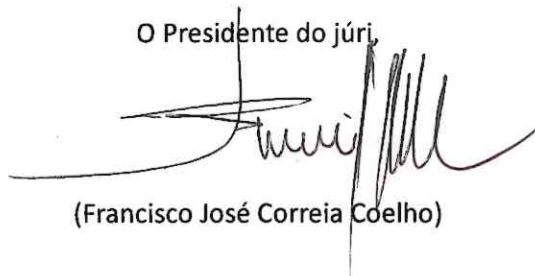 O Presidente do júri,
(Francisco José Correia Coelho)